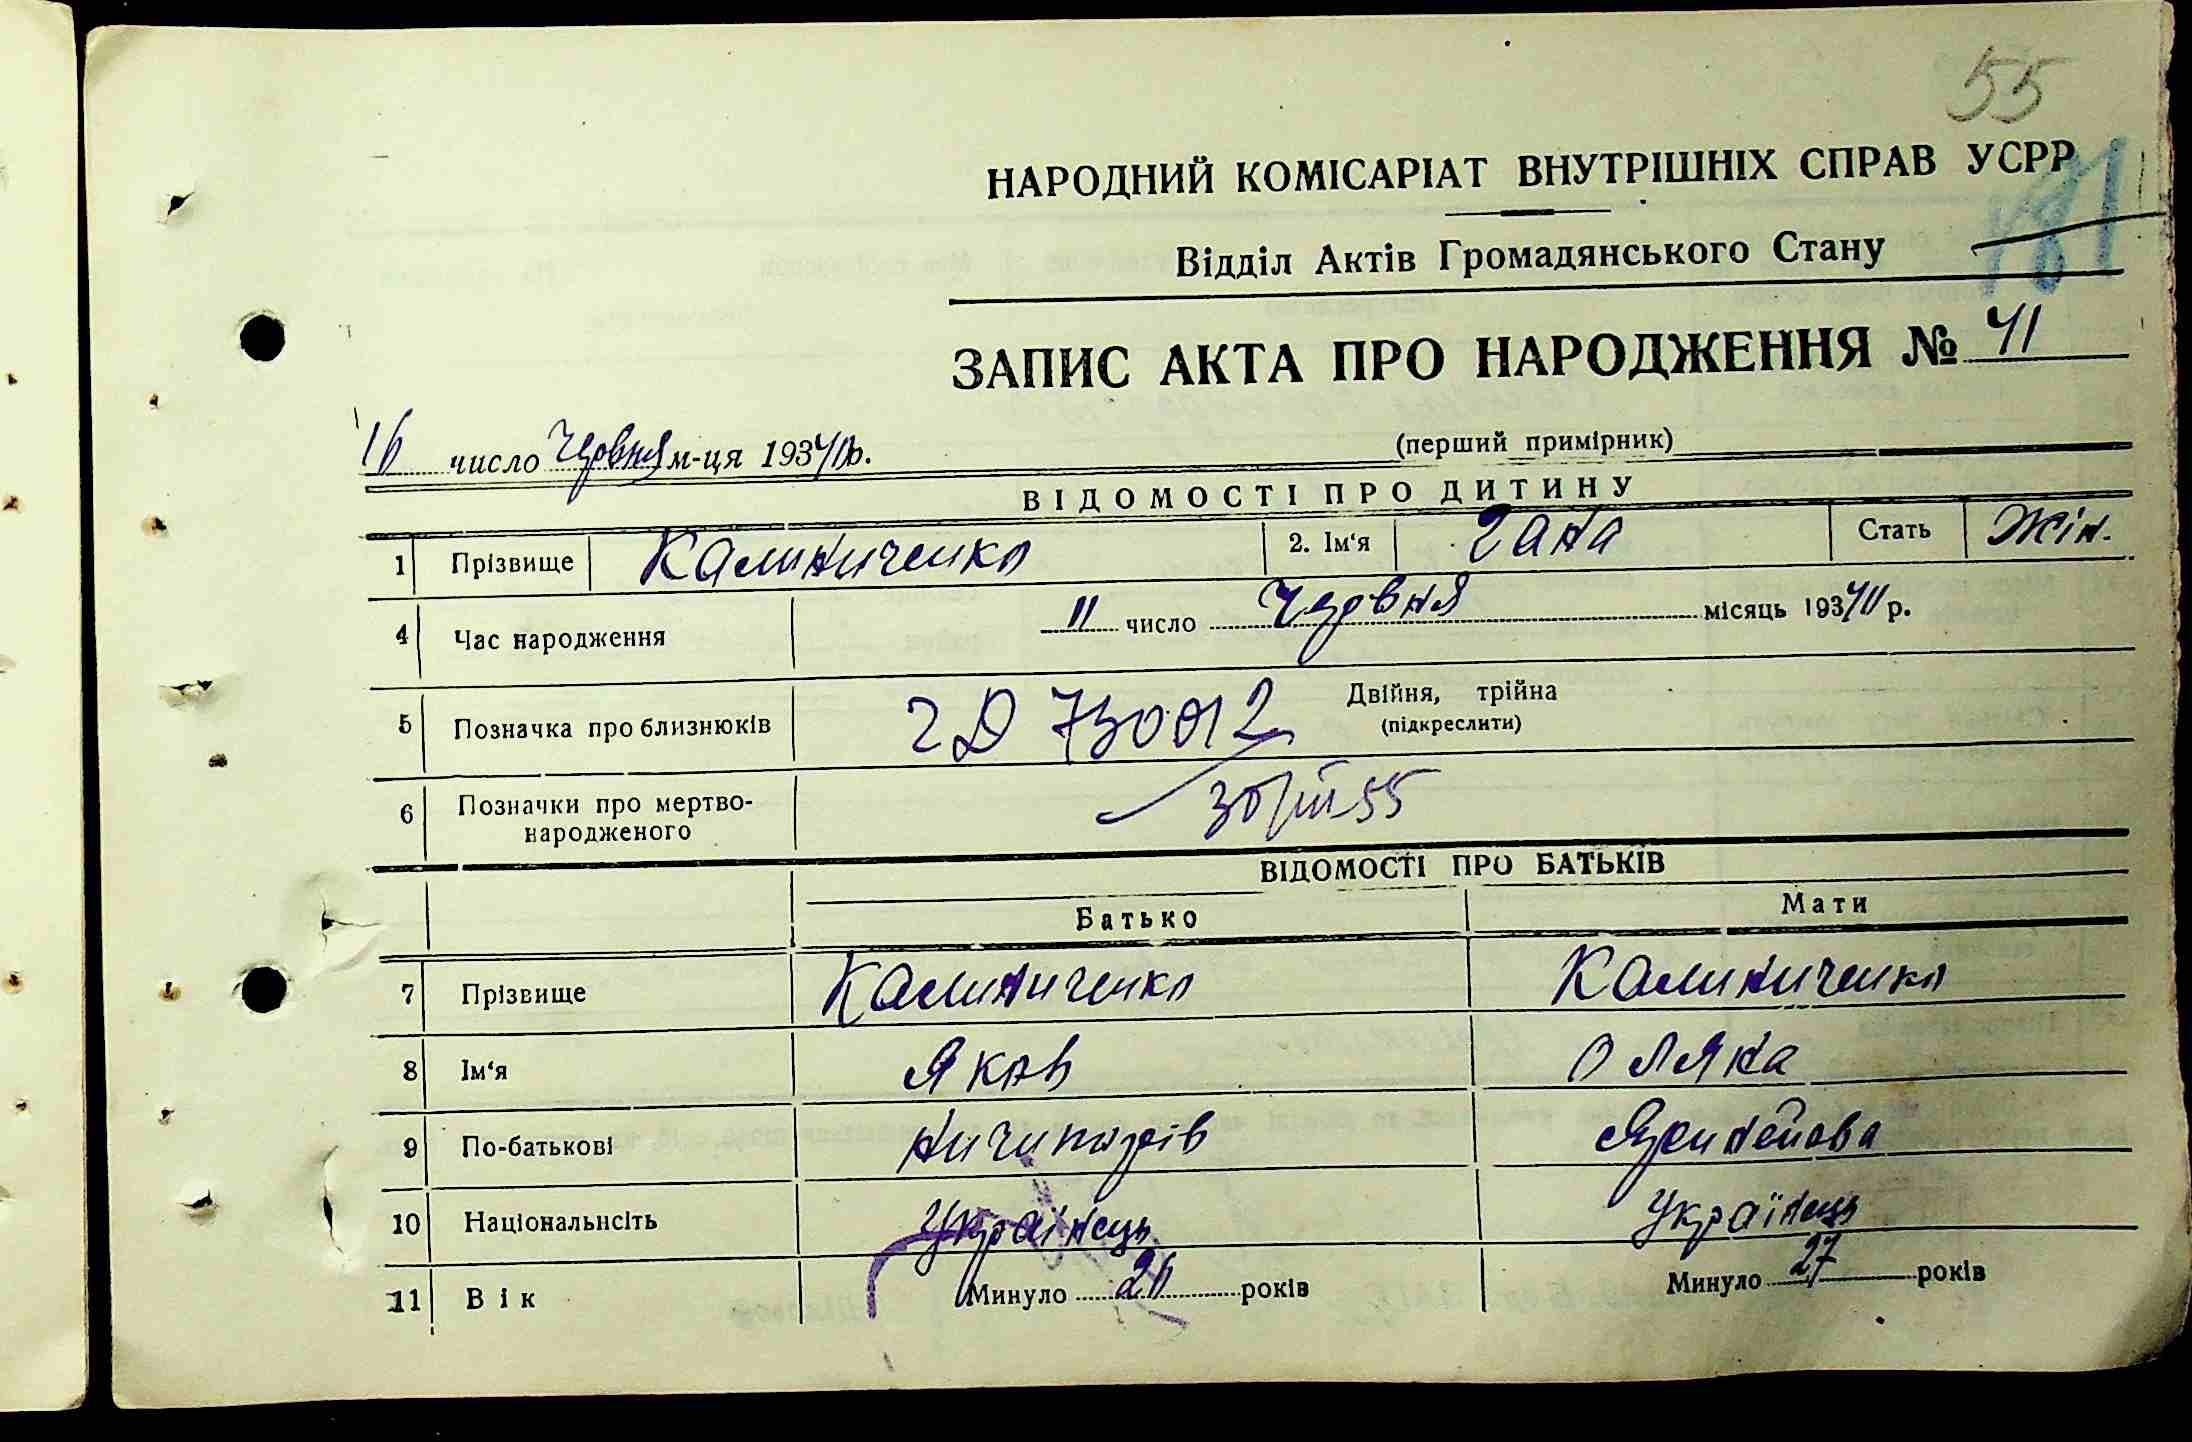 55
181
НАРОДНИЙ КОМІСАРІАТ ВНУТРІШНІХ СПРАВ УСРР
Відділ Актів Громадянського Стану
ЗАПИС АКТА ПРО НАРОДЖЕННЯ № 41
16 число Червня м-ця 1940 р.
(перший примірник)
ВІДОМОСТІ ПРО ДИТИНУ
1 Прізвище Калиниченко 2. Ім‘я Гана Стать Жін.
4 Час народження 11 число Червня місяць 1940 р.
5 Позначка про близнюків Двійня, трійна
(підкреслити)
ГД 730012
6 Позначки про мертво-
народженого
30/III 55
ВІДОМОСТІ ПРО БАТЬКІВ
Батько Мати
7 Прізвище Калиниченко Калиниченко
8 Ім‘я Яков
9 По-батькові Ничипорів
10 Національнсіть Українець Українець
11 Вік Минуло 26 років Минуло 27 років